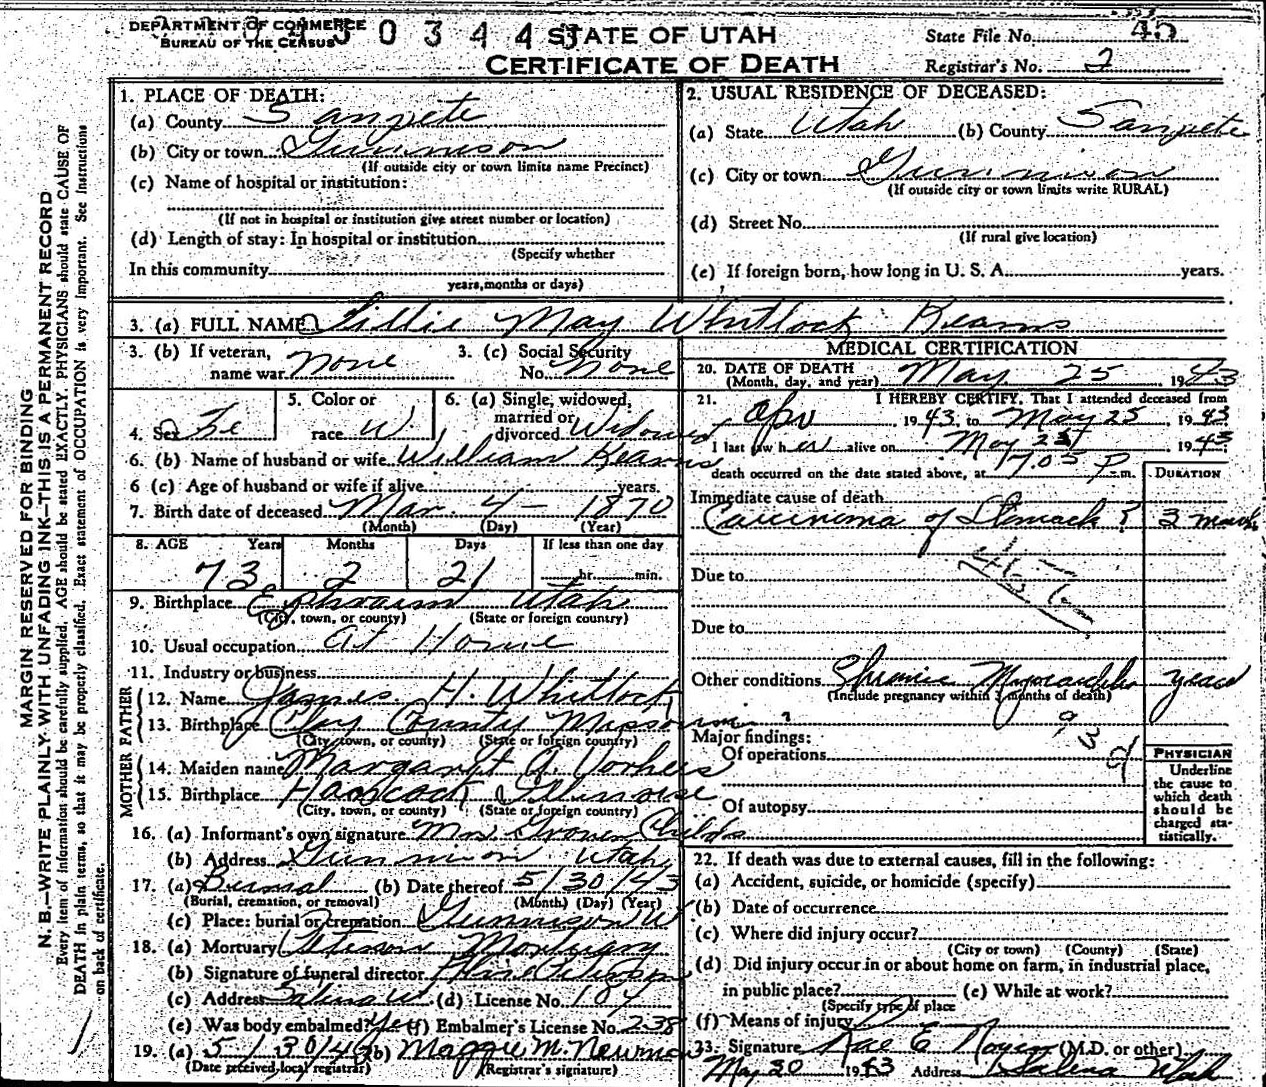 DEPARTMENT OF COMMERCE
BUREAU OF THE CENSUS
0 3 4 4 3
STATE OF UTAH
CERTIFICATE OF DEATH
State File No. 45
Registrar's No. 2
MARGIN RESERVED FOR BINDING
N. B.—WRITE PLAINLY WITH UNFADING INK—THIS IS A PERMANENT RECORD
Every item of information should be carefully supplied. AGE should be stated EXACTLY. PHYSICIANS should state CAUSE OF
DEATH in plain terms, so that it may be properly classified. Exact statement of OCCUPATION is very important. See Instructions
on back of certificate.
1. PLACE OF DEATH:
(a) County Sanpete
(b) City or town Gunnison
(If outside city or town limits name Precinct)
(c) Name of hospital or institution:
(If not in hospital or institution give street number or location)
(d) Length of stay: In hospital or institution
(Specify whether
In this community
years, months or days)
2. USUAL RESIDENCE OF DECEASED:
(a) State Utah (b) County Sanpete
(c) City or town Gunnison
(If outside city or town limits write RURAL)
(d) Street No.
(If rural give location)
(e) If foreign born, how long in U. S. A. years.
3. (a) FULL NAME Lillie May Whitlock Kearns
3. (b) If veteran, name war None
3. (c) Social Security No. None
4. Sex Fe
5. Color or race W.
6. (a) Single, widowed, married or divorced Widowed
6. (b) Name of husband or wife William Kearns
6 (c) Age of husband or wife if alive years.
7. Birth date of deceased Mar. 4 - 1870
(Month) (Day) (Year)
8. AGE Years Months Days If less than one day
73 2 21 hr. min.
9. Birthplace Ephraim Utah
(City, town, or county) (State or foreign country)
10. Usual occupation At Home
11. Industry or business
FATHER
12. Name James H. Whitlock
13. Birthplace Clay County Missouri
(City, town, or county) (State or foreign country)
MOTHER
14. Maiden name Margaret A. Vorhees
15. Birthplace Hancock Illinoise
(City, town, or county) (State or foreign country)
16. (a) Informant's own signature Mrs Childs
(b) Address Gunnison Utah
17. (a) Burial (b) Date thereof 5/30/43
(Burial, cremation, or removal) (Month) (Day) (Year)
(c) Place: burial or cremation Gunnison U
18. (a) Mortuary Mortuary
(b) Signature of funeral director
(c) Address Salina U (d) License No. 184
(e) Was body embalmed? Yes (f) Embalmer's License No. 238
19. (a) 5/30/43 (b) Maggie M. Newman
(Date received local registrar) (Registrar's signature)
MEDICAL CERTIFICATION
20. DATE OF DEATH
(Month, day, and year) May 25, 1943
21. I HEREBY CERTIFY, That I attended deceased from
Apr 1943 to May 25 1943
I last saw her alive on May 25 1943
death occurred on the date stated above, at P m.
DURATION
Immediate cause of death
Carcinoma of Stomach ? 3 months
Due to
Due to
Other conditions Chronic Myocarditis years
(Include pregnancy within 3 months of death)
93d
Major findings:
Of operations
Of autopsy
PHYSICIAN
Underline
the cause to
which death
should be
charged sta-
tistically.
22. If death was due to external causes, fill in the following:
(a) Accident, suicide, or homicide (specify)
(b) Date of occurrence
(c) Where did injury occur?
(City or town) (County) (State)
(d) Did injury occur in or about home on farm, in industrial place,
in public place? (e) While at work?
(Specify type of place
(f) Means of injury
23. Signature Rae E Noyes (M.D. or other)
May 30 1943 Address Salina Utah